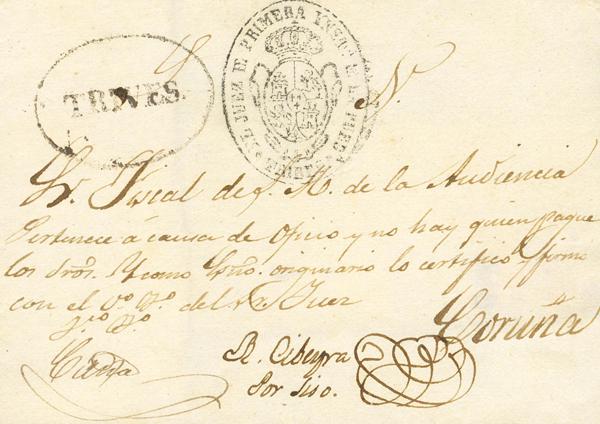 S. N.
TRIVES.
JUEZ DE PRIMERA
Sr. Fiscal de S. M. de la Audiencia
Pertenece á causa de Oficio y no hay quien pague
los dros. Y como Esño. originario lo certifico y firmo
con el Vº Bº del Sr. Juez
Vº Bº
Coruña
R. Cibeyra
Por Liso.